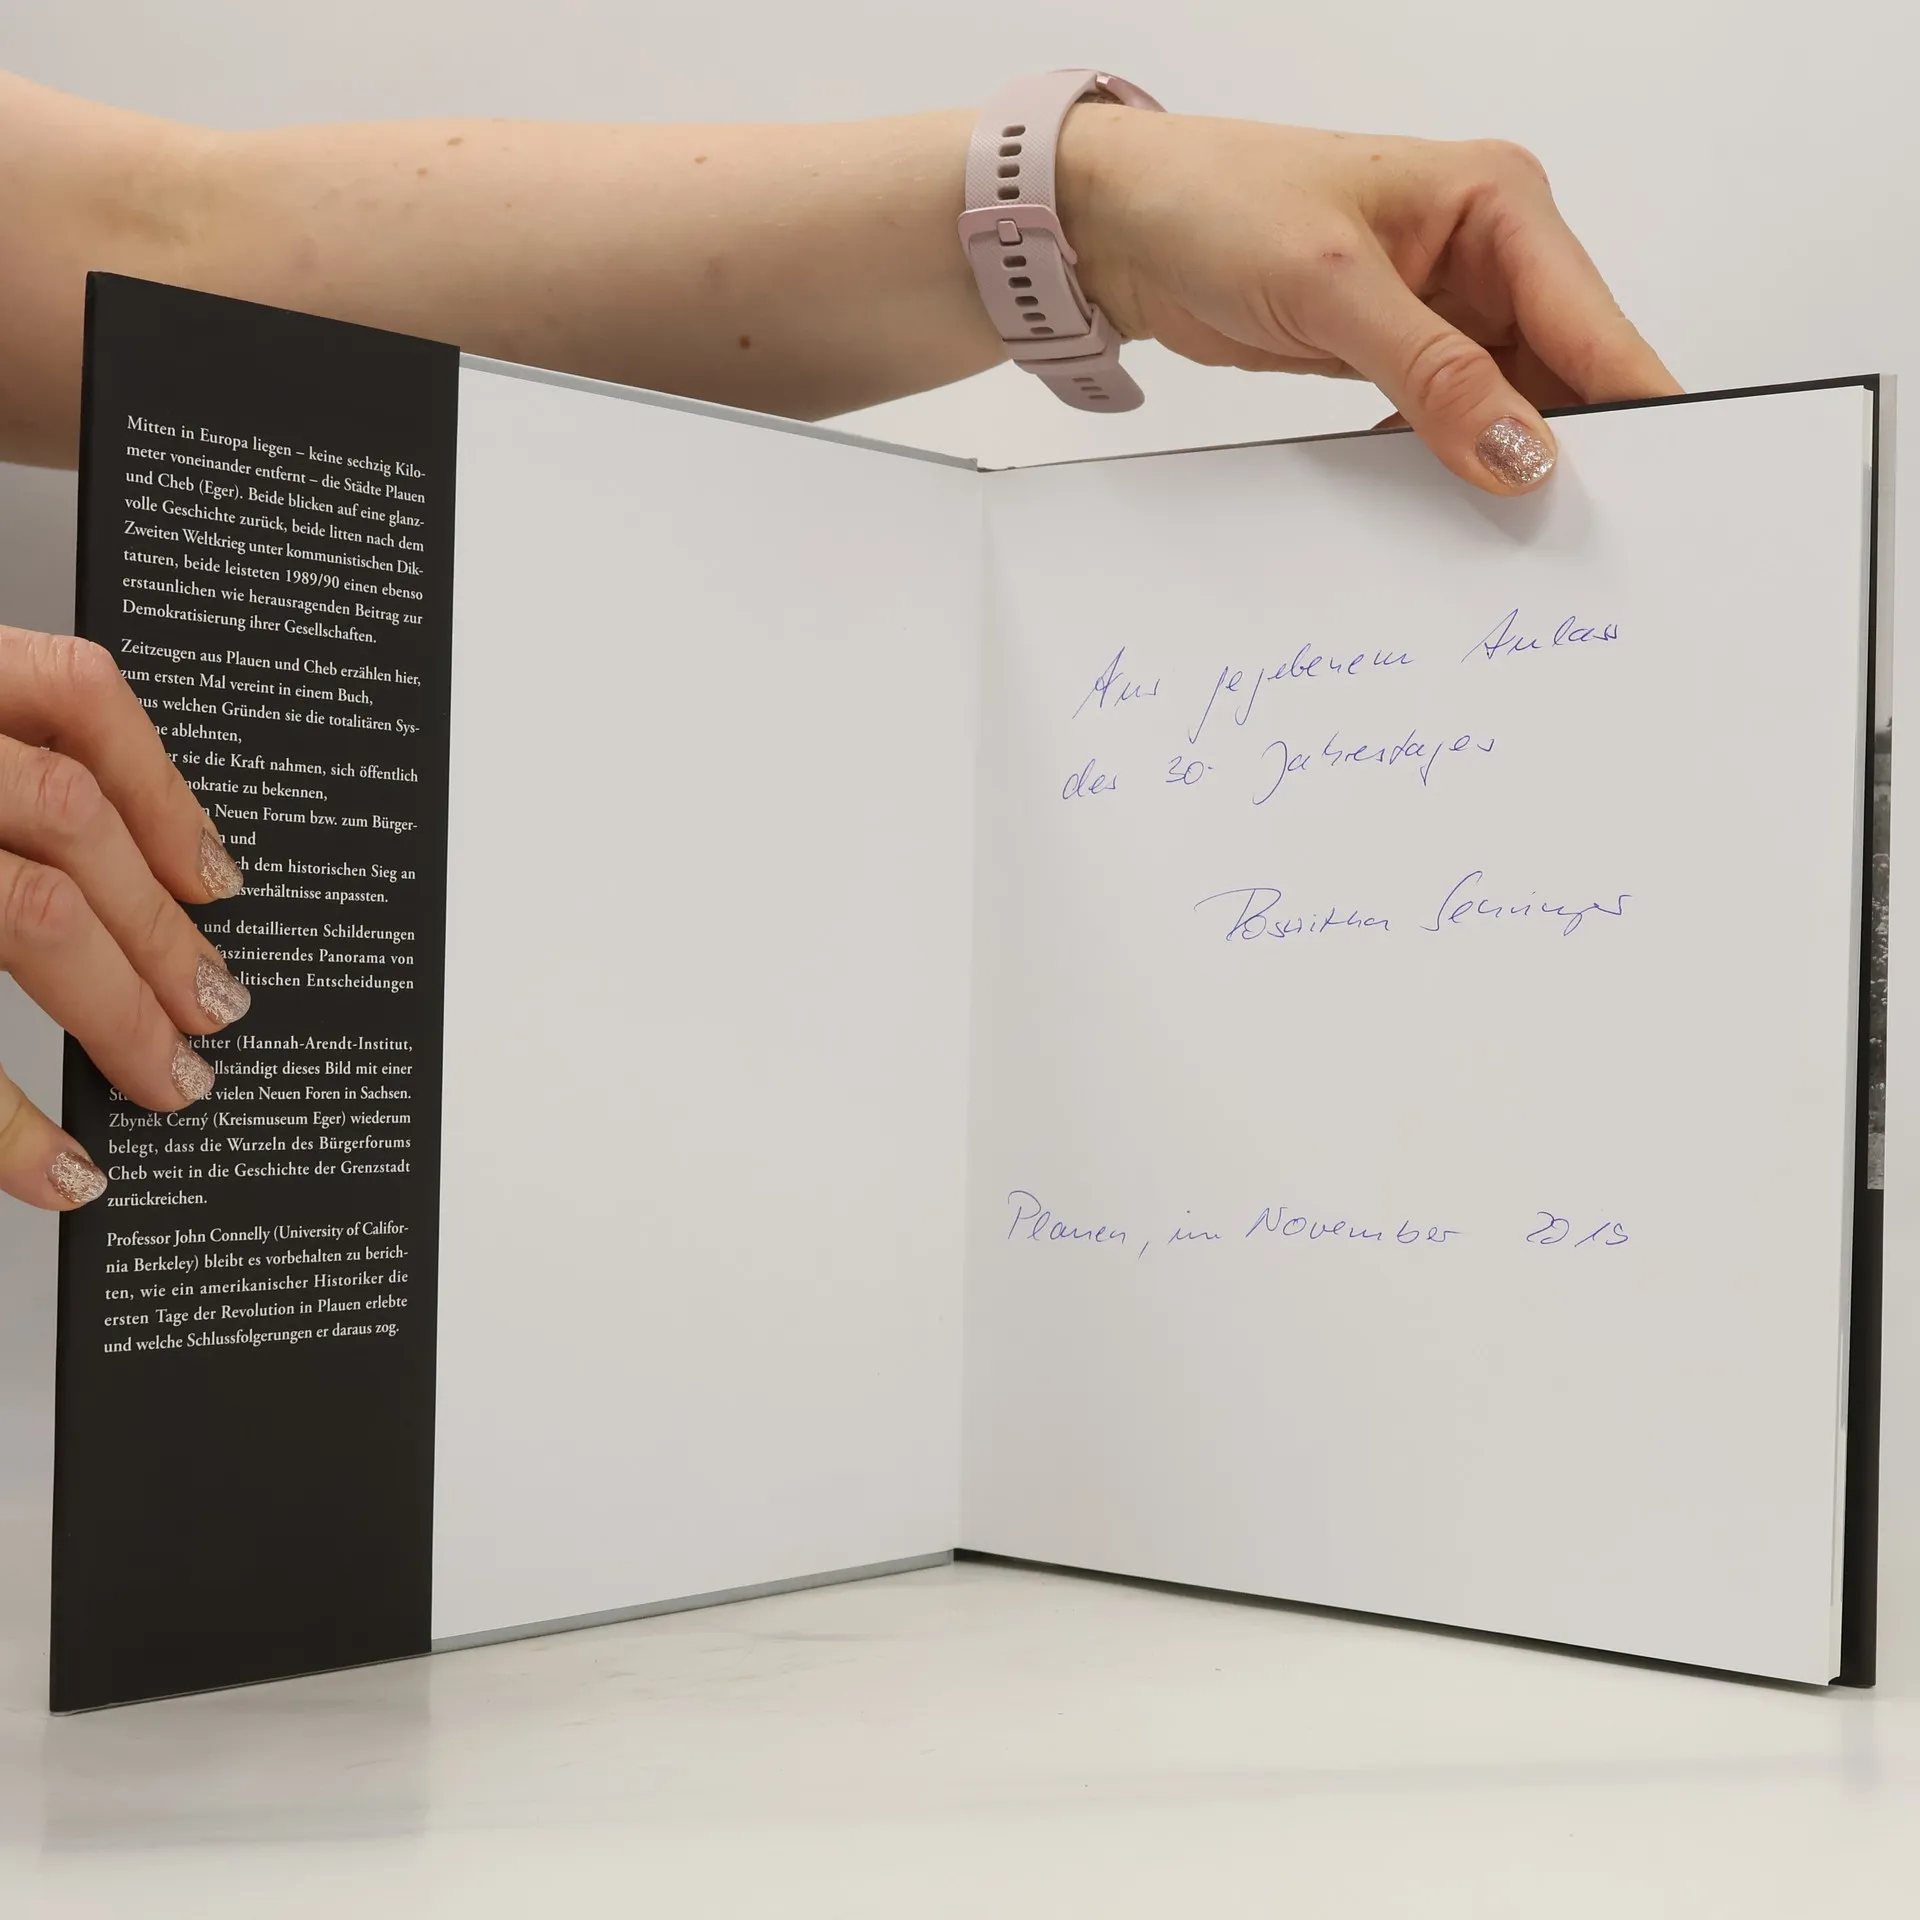 Mitten in Europa liegen – keine sechzig Kilo-
meter voneinander entfernt – die Städte Plauen
und Cheb (Eger). Beide blicken auf eine glanz-
volle Geschichte zurück, beide litten nach dem
Zweiten Weltkrieg unter kommunistischen Dik-
taturen, beide leisteten 1989/90 einen ebenso
erstaunlichen wie herausragenden Beitrag zur
Demokratisierung ihrer Gesellschaften.
Zeitzeugen aus Plauen und Cheb erzählen hier,
zum ersten Mal vereint in einem Buch,
aus welchen Gründen sie die totalitären Sys-
ablehnten,
sie die Kraft nahmen, sich öffentlich
zu bekennen,
Neuen Forum bzw. zum Bürger-
und
dem historischen Sieg an
anpassten.
und detaillierten Schilderungen
faszinierendes Panorama von
politischen Entscheidungen
(Hannah-Arendt-Institut,
dieses Bild mit einer
vielen Neuen Foren in Sachsen.
Zbyněk Černý (Kreismuseum Eger) wiederum
belegt, dass die Wurzeln des Bürgerforums
Cheb weit in die Geschichte der Grenzstadt
zurückreichen.
Professor John Connelly (University of Califor-
nia Berkeley) bleibt es vorbehalten zu berich-
ten, wie ein amerikanischer Historiker die
ersten Tage der Revolution in Plauen erlebte
und welche Schlussfolgerungen er daraus zog.
Aus gegebenem Anlass
des 30. Jahrestages
Plauen, im November 2019